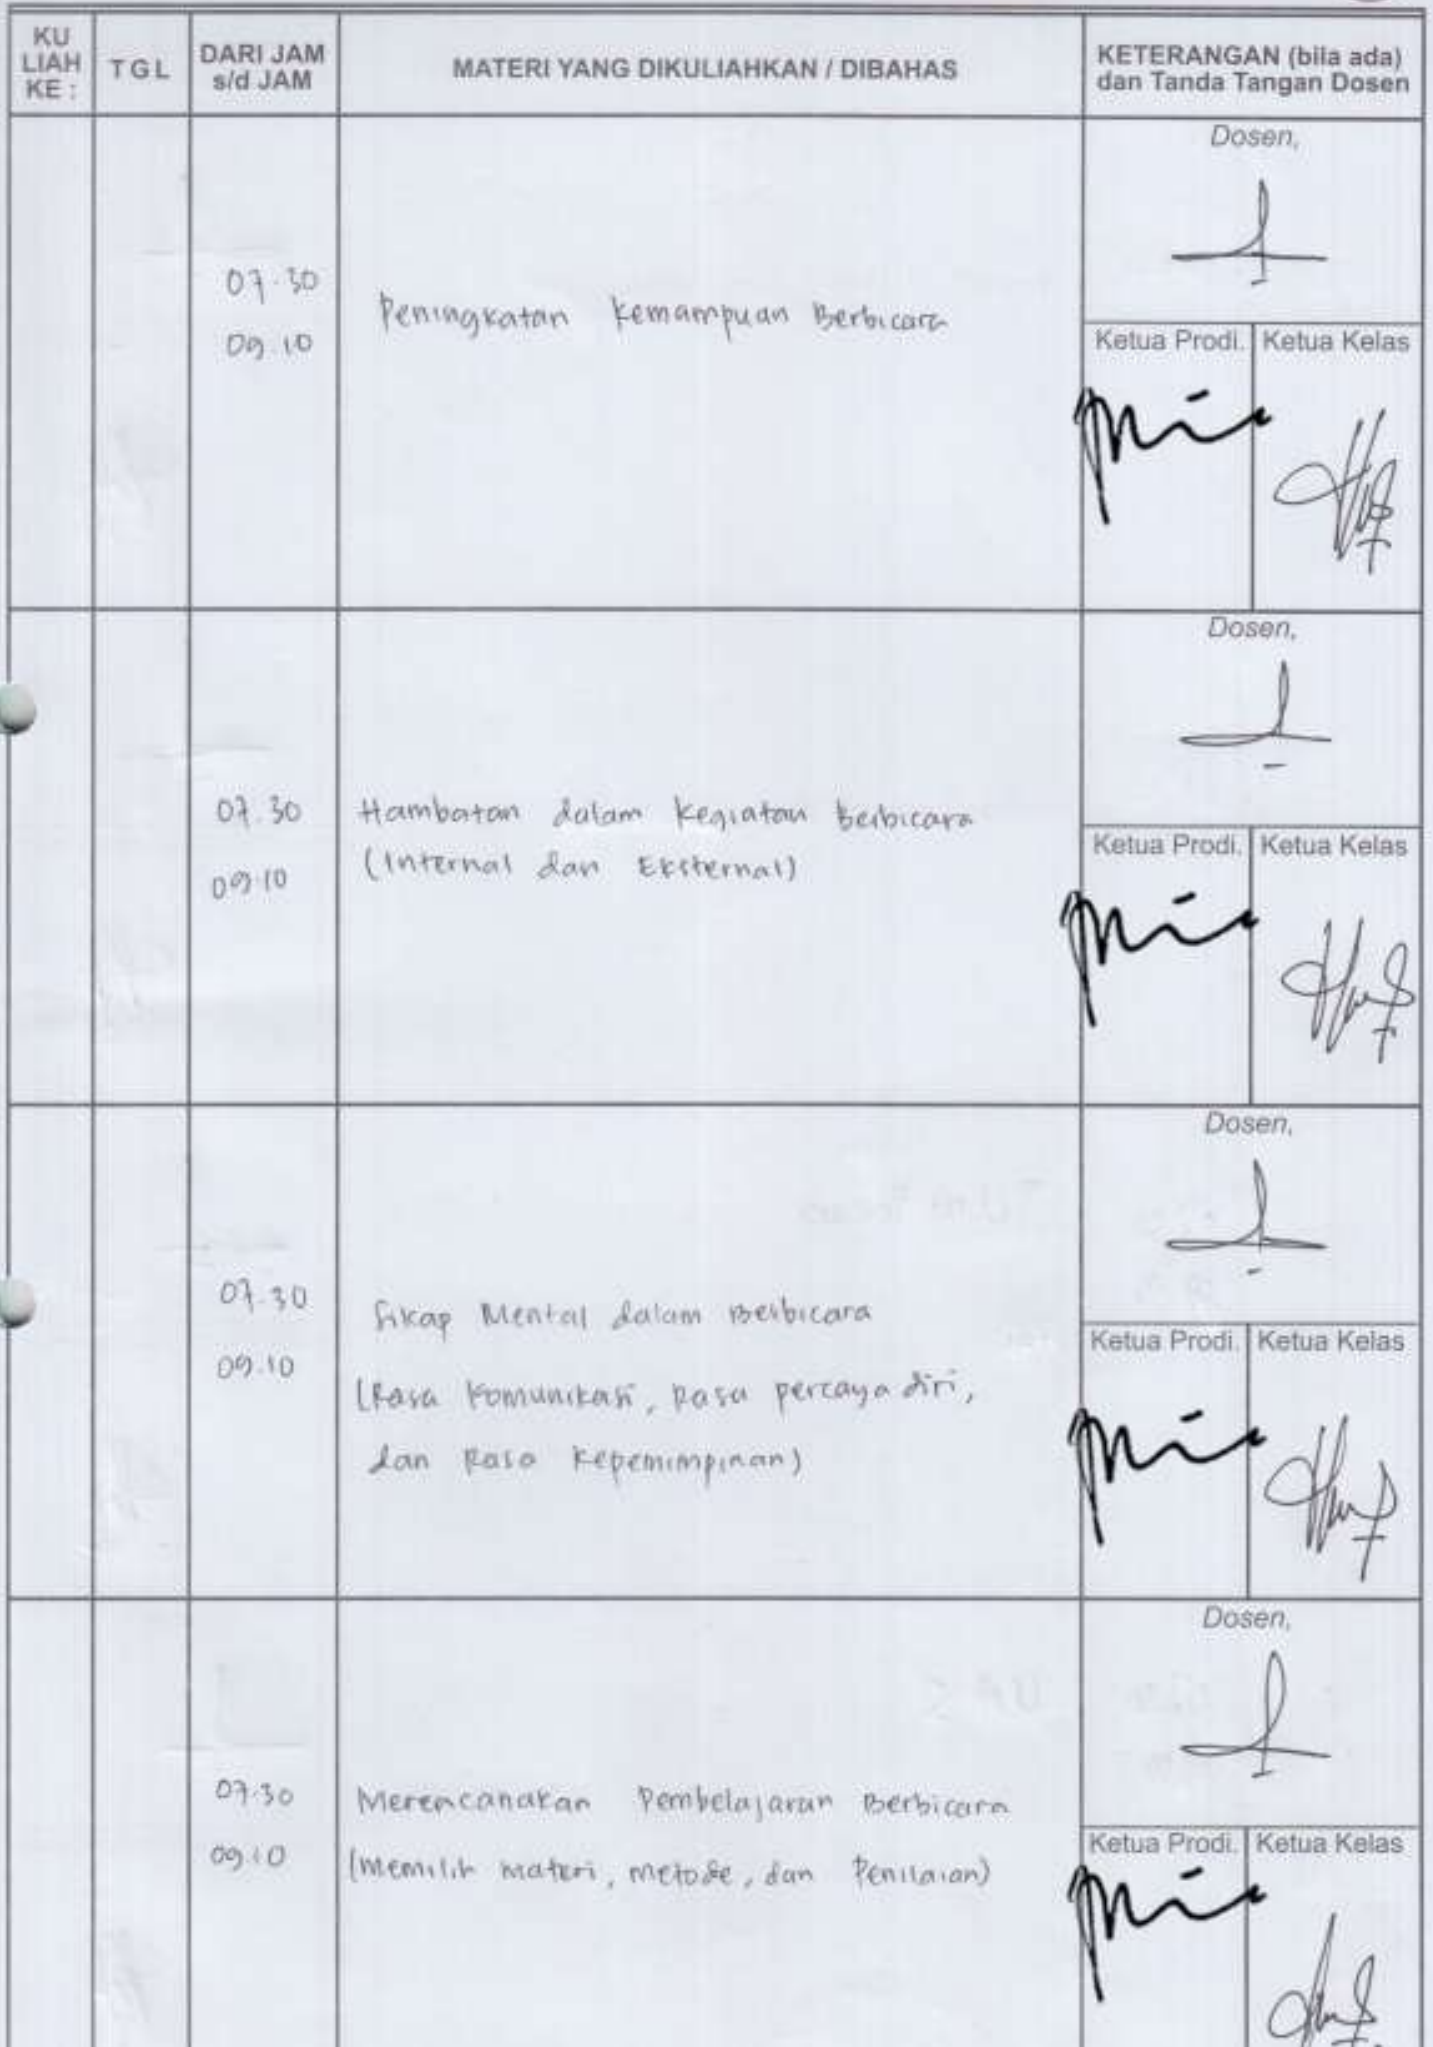 KU LIAH KE :
TGL
DARI JAM s/d JAM
MATERI YANG DIKULIAHKAN / DIBAHAS
KETERANGAN (bila ada) dan Tanda Tangan Dosen
Dosen,
07.30
09.10
Peningkatan Kemampuan Berbicara
Ketua Prodi.
Ketua Kelas
Dosen,
07.30
09.10
Hambatan dalam Kegiatan Berbicara
(Internal dan Eksternal)
Ketua Prodi.
Ketua Kelas
Dosen,
07.30
09.10
Sikap Mental dalam Berbicara
(Rasa Komunikasi, Rasa percaya diri,
dan Rasa Kepemimpinan)
Ketua Prodi.
Ketua Kelas
Dosen,
07.30
09.10
Merencanakan Pembelajaran Berbicara
(Memilih Materi, Metode, dan Penilaian)
Ketua Prodi.
Ketua Kelas